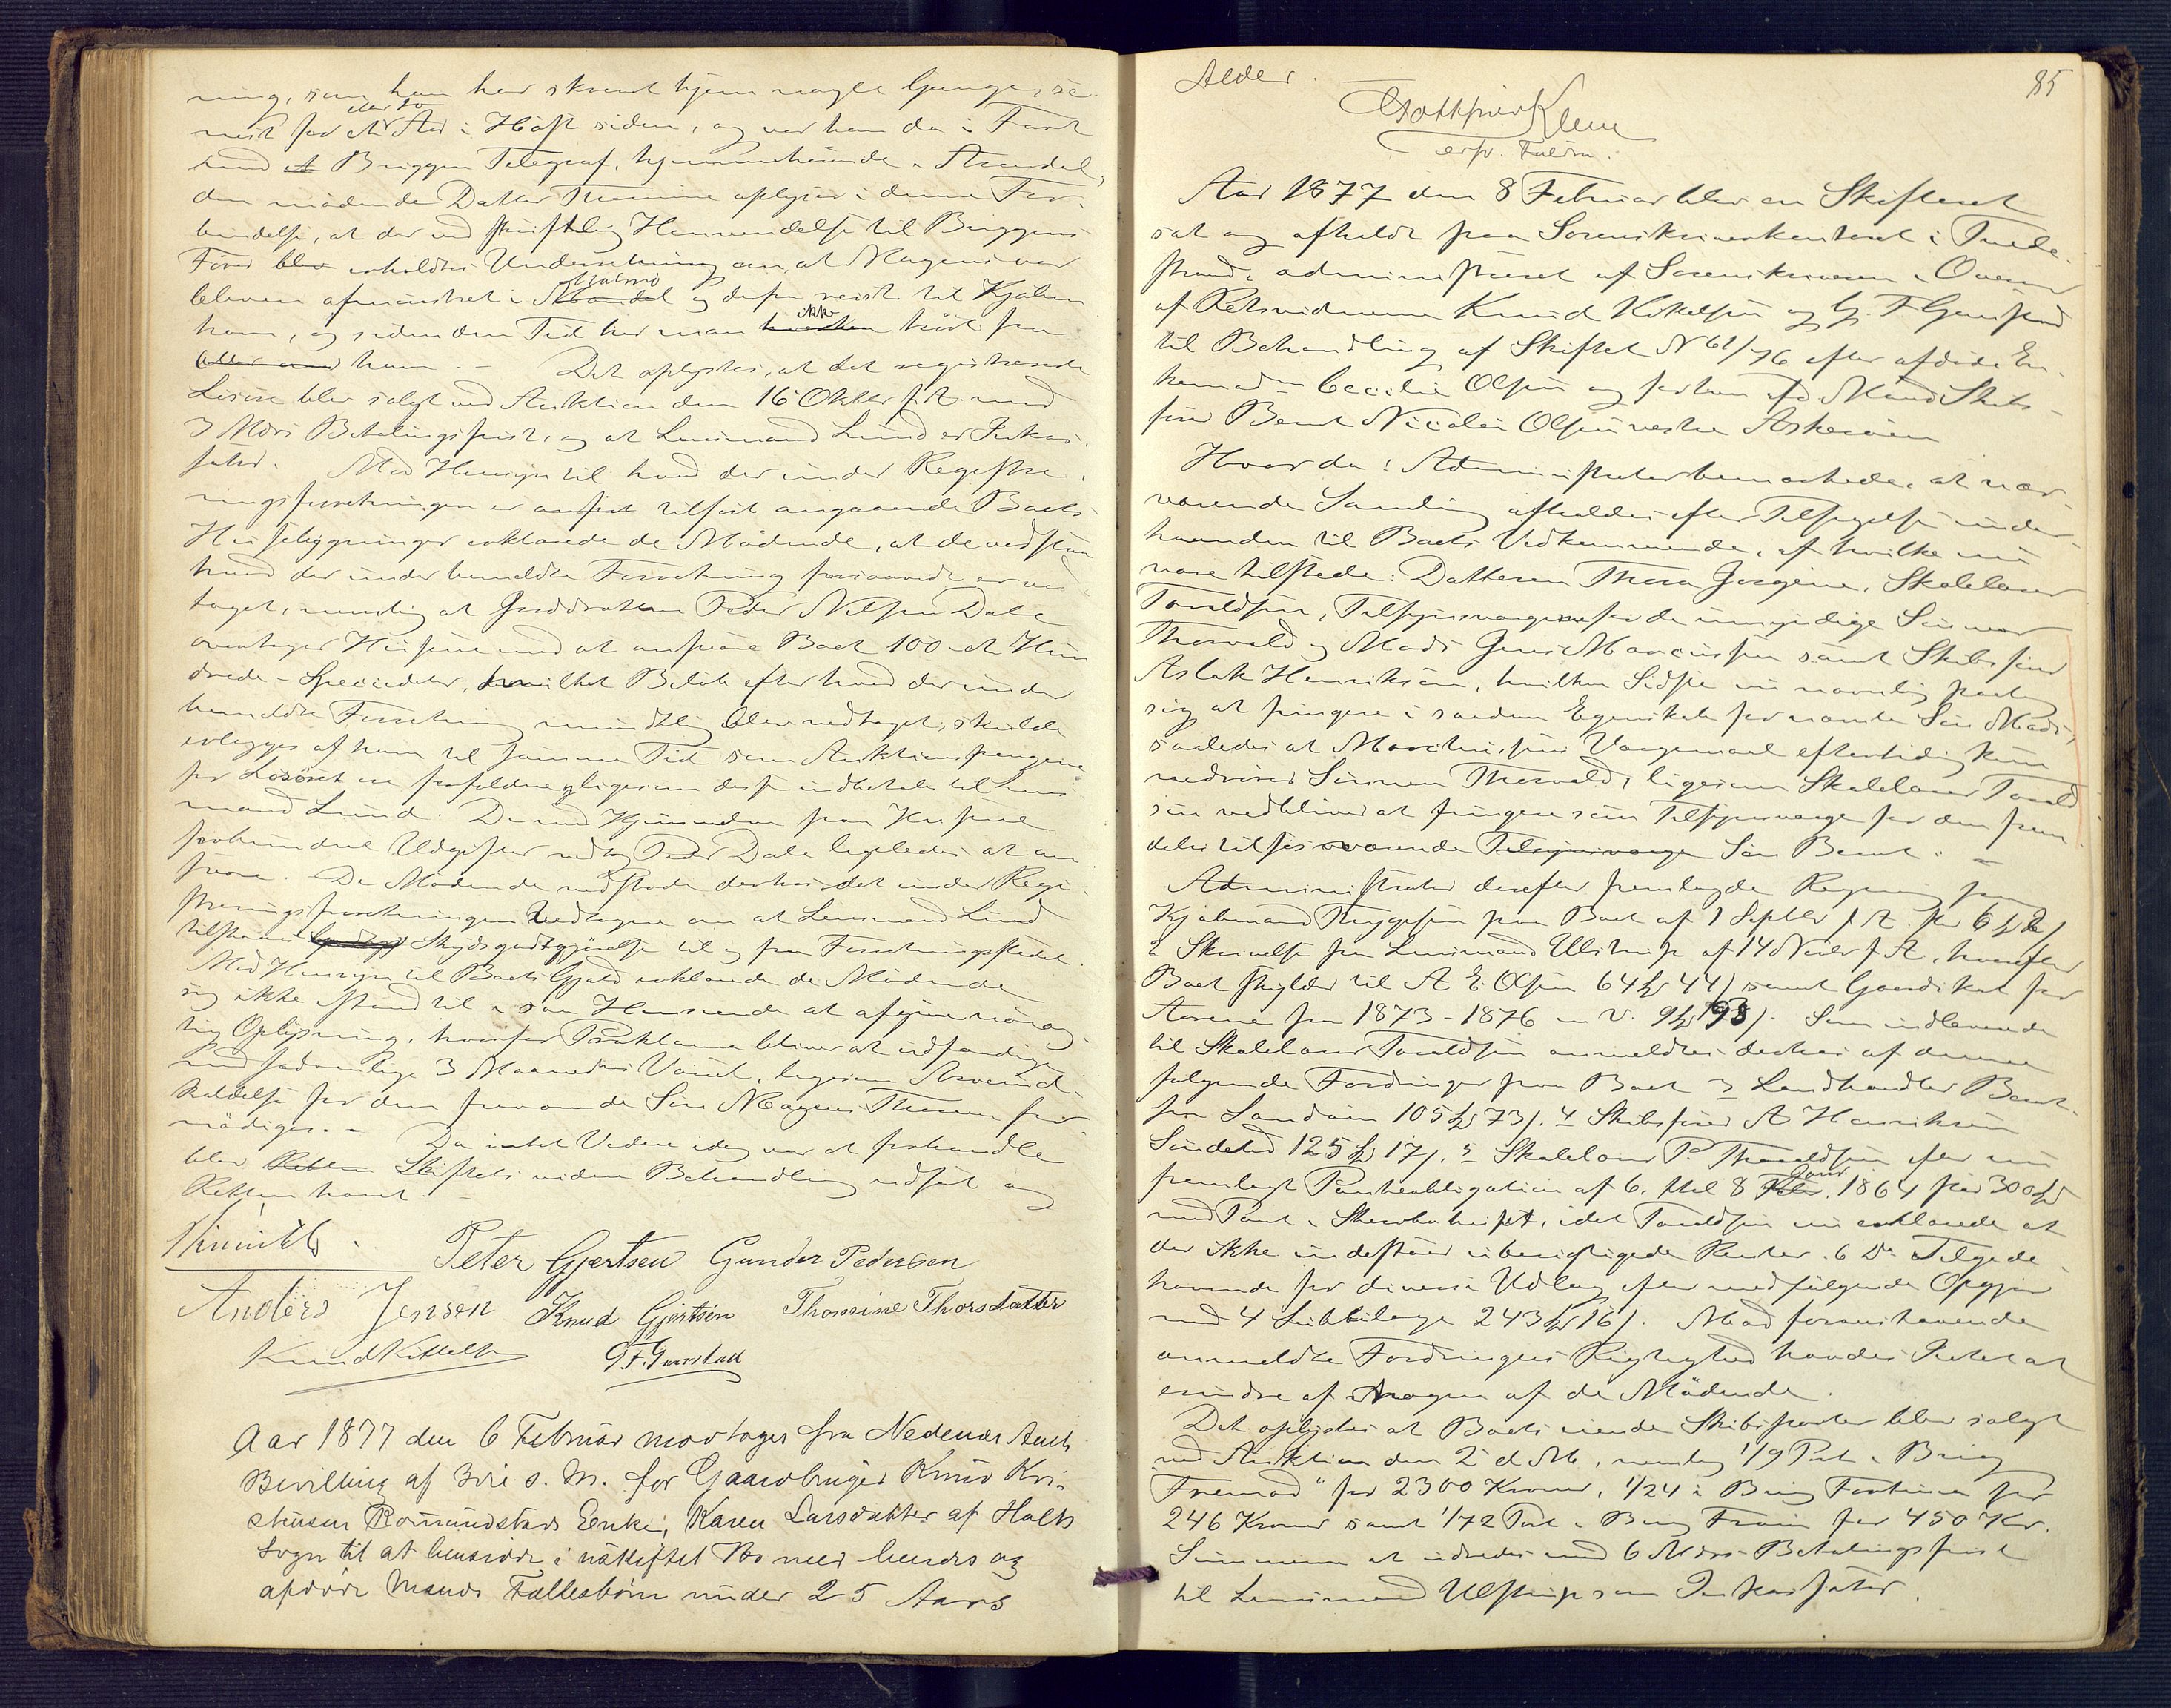 ning, som han har skrevet hjem nogle Gange, se-
nest for et eller to Aar i Høst siden, og var han da i Fart
med Briggen Telegraf, hjemmehørende i Arendal,
den mødende Datter Thomine oplyser i denne For-
bindelse, at der ved skriftlig Henvendelse til Briggens
Fører blev erholdt Underretning om, at Mogens var
bleven afmønstret i Malmø og derfra reist til Kjøben
havn, og siden den Tid har man ikke hørt fra
eller om ham. - Det oplystes, at det registrerede
Løsøre blev solgt ved Auktion den 16 Oktbr f. A. med
3 Mdrs Betalingsfrist, og at Lensmand Lund er Inkas-
sator. Med Hensyn til hvad der under Registre-
ringsforretningen er anført tilført angaaende Boets
Husebygninger erklærede de Mødende, at de vedstaa
hvad der under bemeldte Forretning forsaavidt er ved-
taget, nemlig at Inddratten Peder Nilsen Dale
overtager Husene med at ansvare Boet 100 - et Hun
drede - Speciedaler, hvilket Beløb efter hvad der under
bemeldte Forretning mundtlig blev vedtaget, skulde
erlægges af ham til samme Tid som Auktionspengene
for Løsøret ere forfaldne ligesom disse indbetales til Lens
mand Lund. De med Hjemmelen paa Husene
forbundne Udgifter vedtog Peder Dale ligeledes at an
svare. De Mødende vedstode derhos det under Regi-
streringsforretningen Vedtagne om at Lensmand Lund
tilstaaes Skydsgodtgjørelse til og fra Forretningsstedet.
Med Hensyn til Boets Gjæld erklærede de Mødende
sig ikke istand til i saa Henseende at afgive nöiag
tig Oplysning, hvorfor Proklama bliver at udfærdige
med sædvanlige 3 Maaneders Varsel, ligesom Arveind-
kaldelse for den fraværende Søn Mogens Thorsen for-
nødiges. - Da intet Videre idag var at forhandle
blev Retten Skiftets videre Behandling udsat og
Retten hævet. -
Peter Gjertsen Gunder Pedersen
Anders Jensen Knud Gjertsen Thomine Thorsdatter
Knud Kittelsen G. F. Garnstad
Aar 1877 den 6 Februar modtoges fra Nedenæs Amt
Bevilling af 3die s. M. for Gaardbruger Knud Kri-
stensen Romundstads Enke, Karen Larsdatter af Holts
Sogn til at hensidde i uskiftet Bo med hendes og
afdøde Mands Fællesbørn under 25 Aars
85
Alder.
Gottfried Klem
Aar 1877 den 8 Februar blev en Skifteret
sat og afholdt paa Sorenskriverkontoret i Tvede-
strand, administreret af Sorenskriveren i Overvær
af Retsvidnerne Knud Kittelsen og G. F. Garnstad
til Behandling af Skiftet No 61/76 efter afdøde En-
kemadm Cecilie Olsen og forhen afd Mand Skibs-
fører Bernt Nicolai Olsen vestre Askerøen
Hvorda: Administrator bemærkede, at nær-
værende Samling afholdes efter Tilsigelse under-
haanden til Boets Vedkommende, af hvilke nu
vare tilstede: Datteren Thora Jorgine, Skolelærer
Toraldsen, Tilsynsværge for de umyndige Sønner
Thorvald og Mads Jens Marcussen samt Skibsfører
Aslak Henriksen, hvilken Sidste nu nemlig paatog
sig at fungere i saadan Egenskab for nævnte Søn Mads,
saaledes at Marcussens Værgemaal eftertidig kun
vedrører Sønnen Thorvald, ligesom Skolelærer Torald
sen vedbliver at fungere som Tilsynsværge for den frem
deles tilsøs værende Tilsynsværge Søn Bernt. -
Administrator derefter fremlagde Regning fra
Kjøbmand Thygesen paa Boet af 1 Septbr f. A. for
2 Skrivelse fra Lensmand Ulstrup af 14 Novbr f. A., hvorefter
Boet skylder til A. E. Olsen 64 44 samt Godskat for
Aarene fra 1873 - 1876 Som indleverede
til Skolelærer Toraldsen anmeldtes derhos af denne
følgende Fordringer paa Boet 3 Landhandler Bernt-
sen Sandøen 105 73. 4 Skibsfører A Henriksen
Sundetud 125 17. 5 Skolelærer P. Thoraldsen efter nu
fremlagt Panteobligation af 6. tbl 8 Janr. 1864 for 300
med Pant i idet Toraldsen nu erklærede at
der ikke indestaar uberigtigede Renter. 6 Do Tilgode-
havende for diverse Udlæg efter medfølgende Opgjør
med 4 Litbilage 243 16. Mod foranstaaende
anmeldte Fordringers Rigtighed havdes Intet at
erindre af Nogen af de Mødende.
Det oplystes at Boets eiende Skibsparter blev solgt
ved Auktion den 2 d. M., nemlig 1/9 Part i Brig
"Fremad" for 2300 Kroner, 1/24 i Brig Fortuna for
246 Kroner samt 1/72 Part i Brig for 450 Kr.
Summen at udredes med 6 Mdrs Betalingsfrist
til Lensmand Ulstrup som Inkassator.